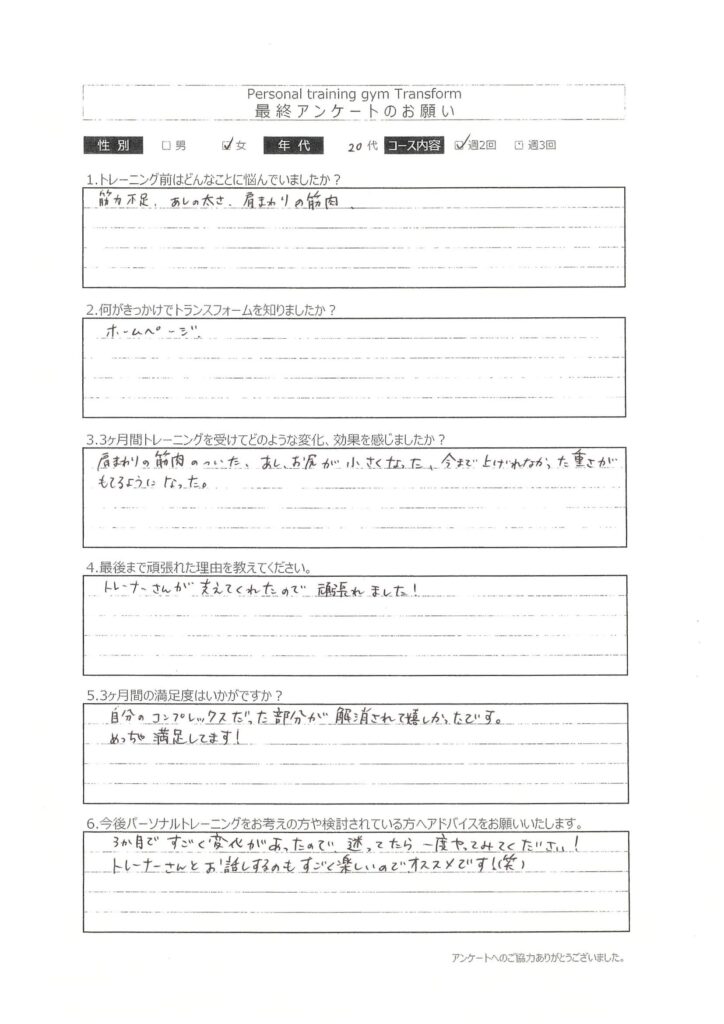 Personal training gym Transform
最終アンケートのお願い
性別 □男 ☑女 年代 20代 コース内容 ☑週2回 □週3回
1.トレーニング前はどんなことに悩んでいましたか？
筋力不足、あしの太さ、肩まわりの筋肉、
2.何がきっかけでトランスフォームを知りましたか？
ホームページ、
3.3ヶ月間トレーニングを受けてどのような変化、効果を感じましたか？
肩まわりの筋肉のついた、あし、お尻が小さくなった、今まで上げれなかった重さが
もてるようになった。
4.最後まで頑張れた理由を教えてください。
トレーナーさんが支えてくれたので頑張れました！
5.3ヶ月間の満足度はいかがですか？
自分のコンプレックスだった部分が解消されて嬉しかったです。
めっちゃ満足してます！
6.今後パーソナルトレーニングをお考えの方や検討されている方へアドバイスをお願いいたします。
3か月ですごく変化があったので、迷ってたら一度やってみてください！
トレーナーさんとお話しするのもすごく楽しいのでオススメです！(笑)
アンケートへのご協力ありがとうございました。